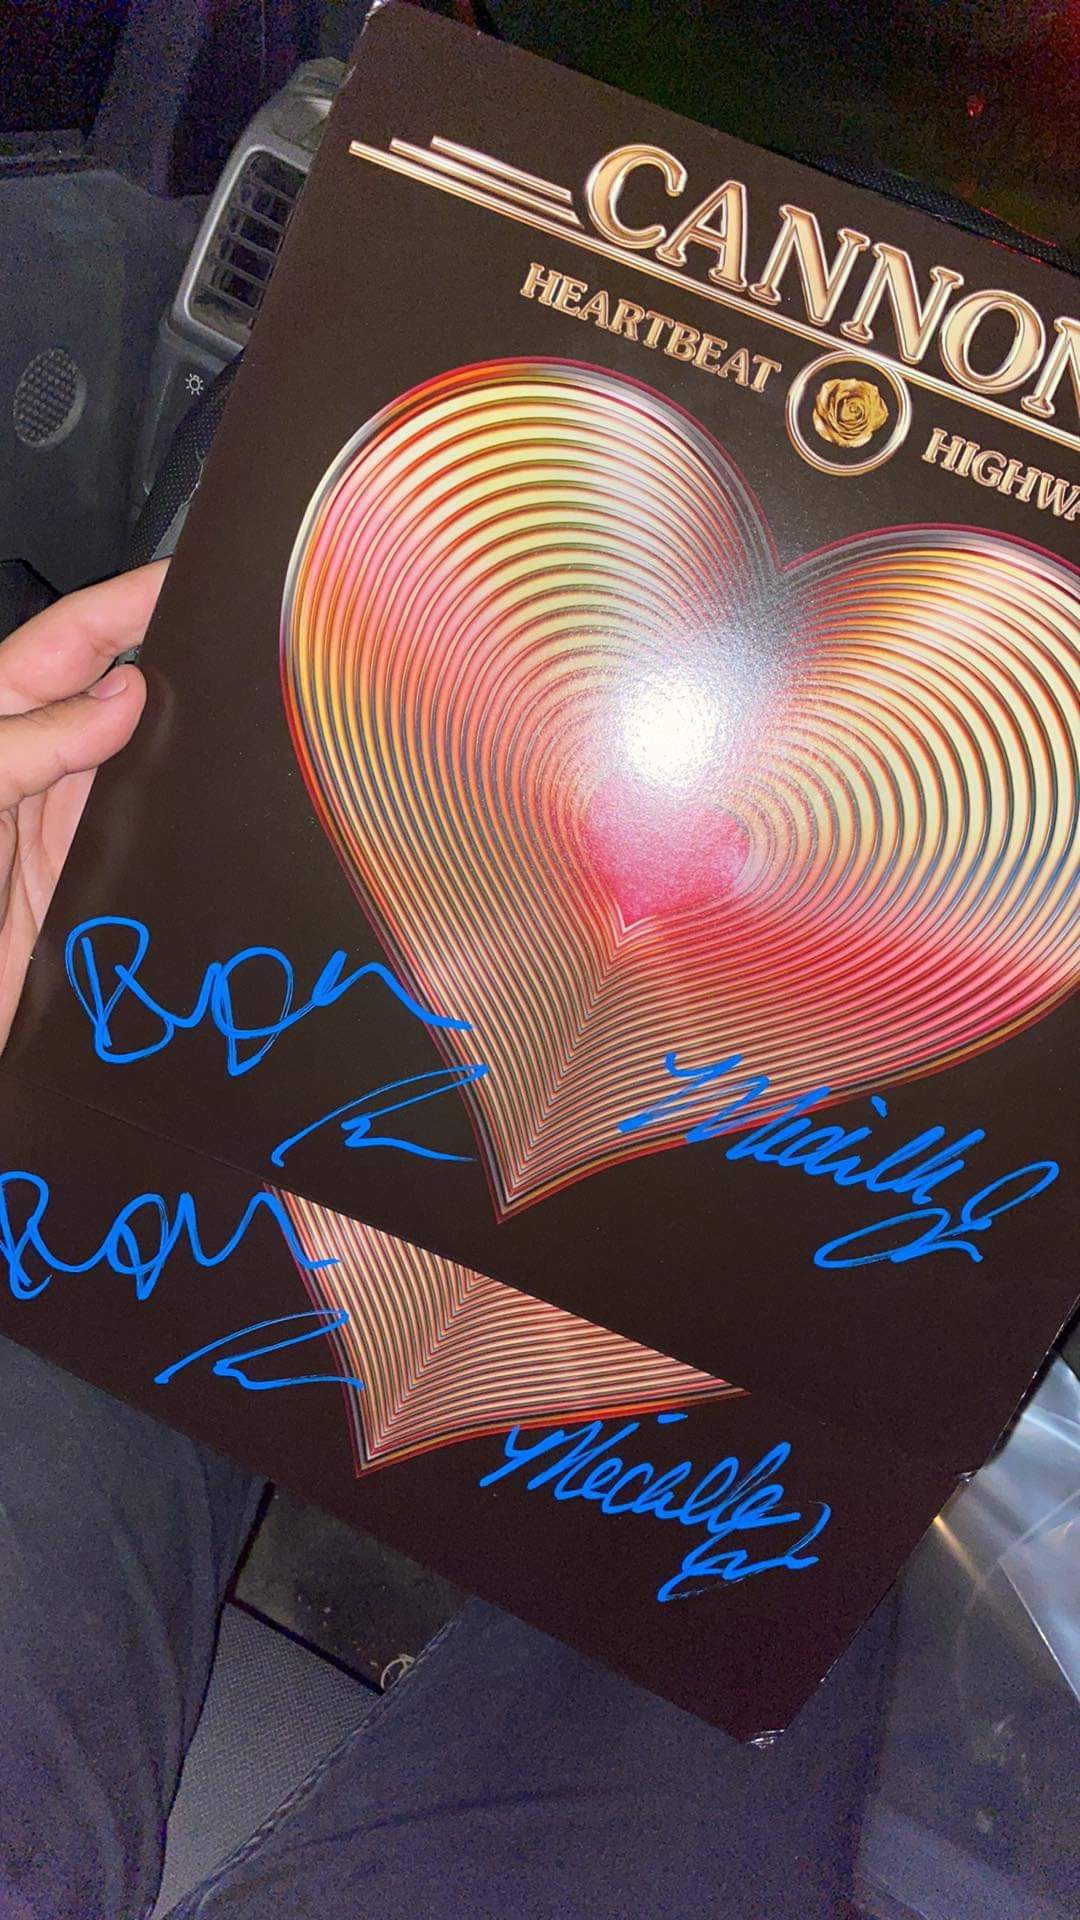 CANNON
HEARTBEAT
HIGHWA
Ryan
Michelle
Ryan
Michelle